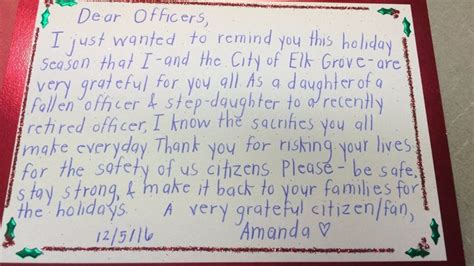 Dear Officers,
I just wanted to remind you this holiday
season that I-and the City of Elk Grove-are
very grateful for you all. As a daughter of a
fallen officer & step-daughter to a recently
retired officer, I know the sacrifies you all
make everyday. Thank you for risking your lives
for the safety of us citizens. Please - be safe,
stay strong, & make it back to your families for
the holidays. A very grateful citizen/fan,
12/5/16 Amanda ♡